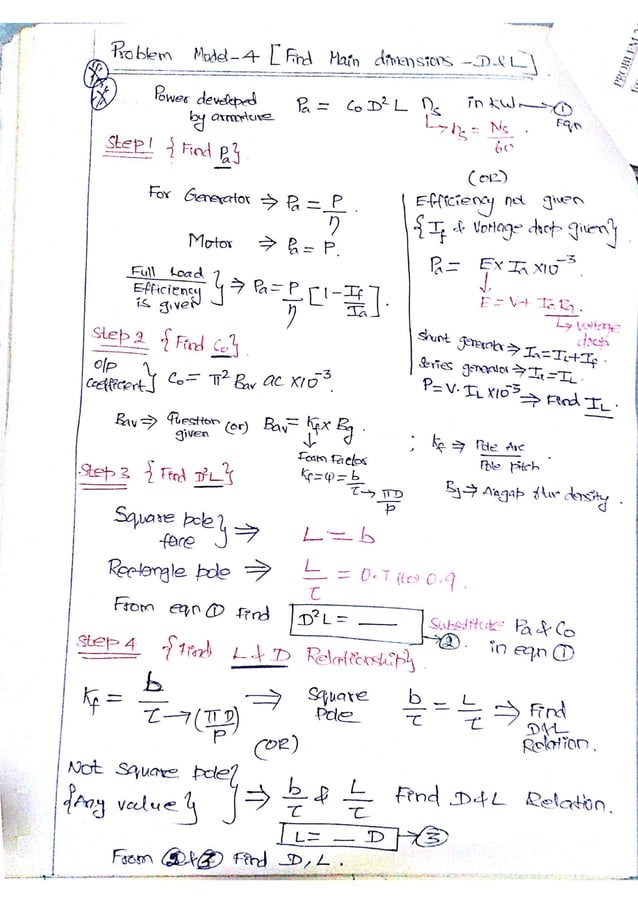 Problem Model-4 [Find Main dimensions - D & L].
PROBLEM
Power developed by armature Pa = C₀ D²L ns in kW → ① Eqn
↳ ns = Ns/60
Step 1 {Find Pa}.
For Generator ⇒ Pa = P/η
Motor ⇒ Pa = P.
Full Load Efficiency is given } ⇒ Pa = P/η [1 - If/Ia].
(OR)
Efficiency not given
{If & Voltage drop given}
Pa = E x Ia x10⁻³
↓
E = V + Ia Ra
↳ Voltage drop
Shunt generator ⇒ Ia = IL + If
Series generator ⇒ Ia = IL.
P = V. IL x10⁻³ ⇒ Find IL.
Step 2 {Find C₀}.
O/P Coefficient } C₀ = π² Bav ac x10⁻³
Bav ⇒ Question given (or) Bav = Kf x Bg.
↓
Foam Factor
Kf = ψ = b/τ → πD/P
; Kf ⇒ Pole Arc/Pole pitch.
Bg → Airgap flux density.
Step 3 {Find D²L}
Square pole face } ⇒ L = b
Rectangle pole ⇒ L/τ = 0.7 (to) 0.9.
From eqn ① find D²L = — → ②
Substitute Pa & C₀ in eqn ①
Step 4 {Find L & D Relationship}.
Kf = b/τ → (πD/P) ⇒ Square Pole b/τ = L/τ ⇒ Find D&L Relation.
(OR)
Not Square pole} {Any value} } ⇒ b/τ & L/τ Find D & L Relation.
L = — D → ③
From ② & ③ Find D, L.